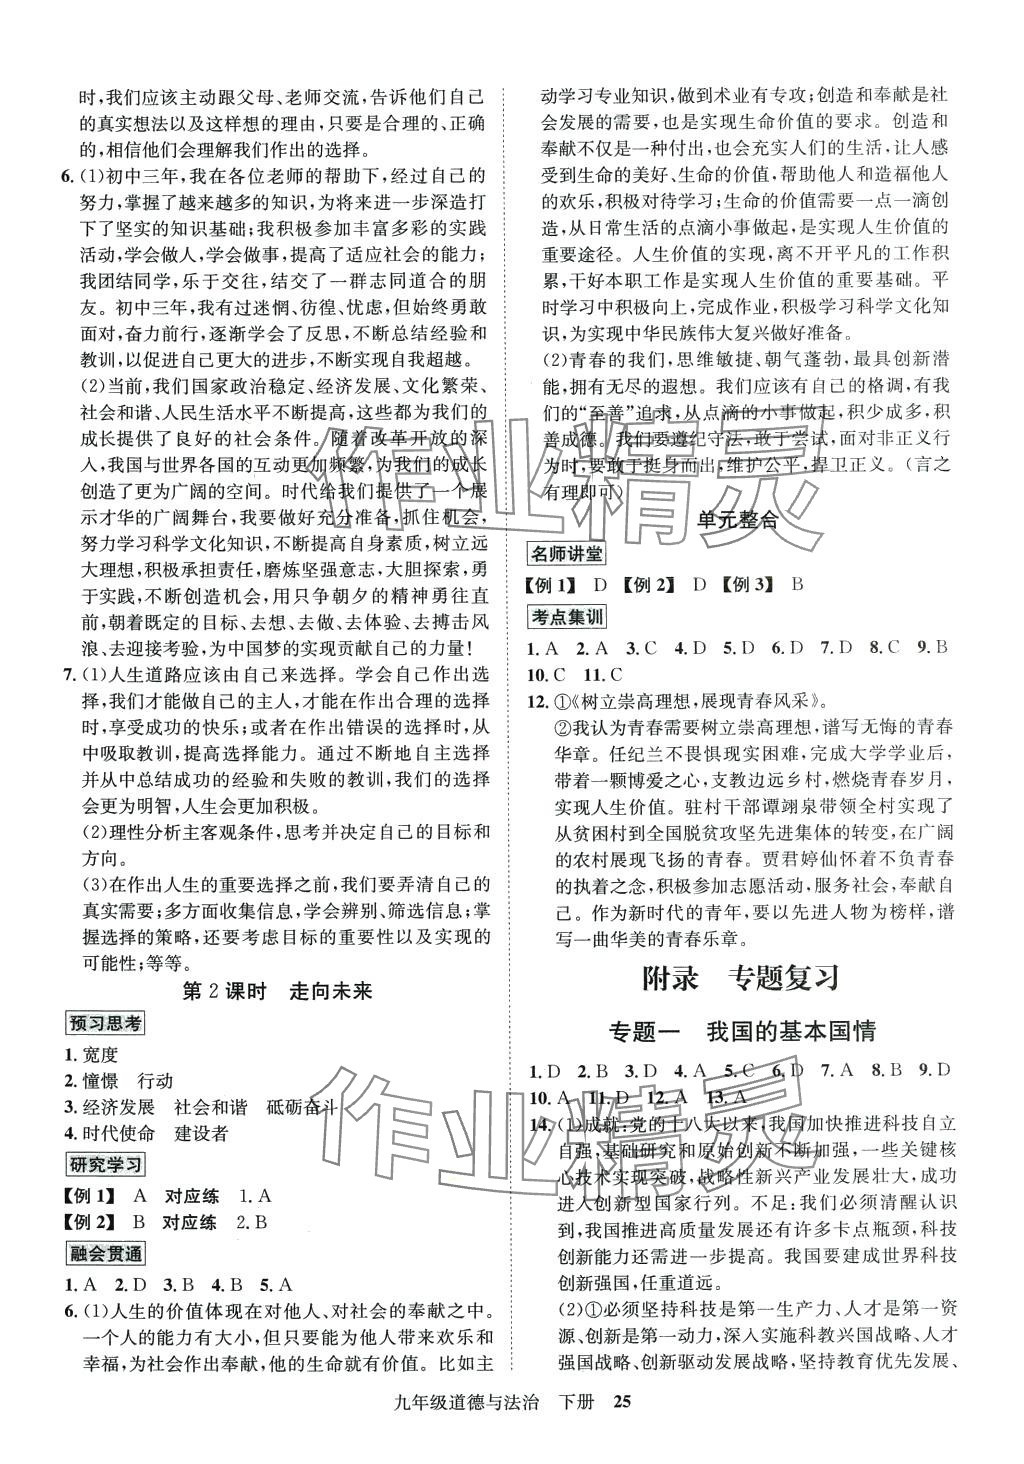 时,我们应该主动跟父母、老师交流,告诉他们自己
的真实想法以及这样想的理由,只要是合理的、正确
的,相信他们会理解我们作出的选择。
6. (1)初中三年,我在各位老师的帮助下,经过自己的
努力,掌握了越来越多的知识,为将来进一步深造打
下了坚实的知识基础;我积极参加丰富多彩的实践
活动,学会做人,学会做事,提高了适应社会的能力;
我团结同学,乐于交往,结交了一群志同道合的朋
友。初中三年,我有过迷惘、彷徨、忧虑,但始终勇敢
面对,奋力前行,逐渐学会了反思,不断总结经验和
教训,以促进自己更大的进步,不断实现自我超越。
(2)当前,我们国家政治稳定、经济发展、文化繁荣、
社会和谐、人民生活水平不断提高,这些都为我们的
成长提供了良好的社会条件。随着改革开放的深
入,我国与世界各国的互动更加频繁,为我们的成长
创造了更为广阔的空间。时代给我们提供了一个展
示才华的广阔舞台,我要做好充分准备,抓住机会,
努力学习科学文化知识,不断提高自身素质,树立远
大理想,积极承担责任,磨炼坚强意志,大胆探索,勇
于实践,不断创造机会,用只争朝夕的精神勇往直
前,朝着既定的目标、去想、去做、去体验、去搏击风
浪、去迎接考验,为中国梦的实现贡献自己的力量!
7. (1)人生道路应该由自己来选择。学会自己作出选
择,我们才能做自己的主人,才能在作出合理的选择
时,享受成功的快乐;或者在作出错误的选择时,从
中吸取教训,提高选择能力。通过不断地自主选择
并从中总结成功的经验和失败的教训,我们的选择
会更为明智,人生会更加积极。
(2)理性分析主客观条件,思考并决定自己的目标和
方向。
(3)在作出人生的重要选择之前,我们要弄清自己的
真实需要;多方面收集信息,学会辨别、筛选信息;掌
握选择的策略,还要考虑目标的重要性以及实现的
可能性;等等。
第2课时 走向未来
预习思考
1. 宽度
2. 憧憬 行动
3. 经济发展 社会和谐 砥砺奋斗
4. 时代使命 建设者
研究学习
【例1】 A 对应练 1. A
【例2】 B 对应练 2. B
融会贯通
1. A 2. D 3. B 4. B 5. A
6. (1)人生的价值体现在对他人、对社会的奉献之中。
一个人的能力有大小,但只要能为他人带来欢乐和
幸福,为社会作出奉献,他的生命就有价值。比如主
动学习专业知识,做到术业有专攻;创造和奉献是社
会发展的需要,也是实现生命价值的要求。创造和
奉献不仅是一种付出,也会充实人们的生活,让人感
受到生活的美好、生命的价值,帮助他人和造福他人
的欢乐,积极对待学习;生命的价值需要一点一滴创
造,从日常生活的点滴小事做起,是实现人生价值的
重要途径。人生价值的实现,离不开平凡的工作积
累,干好本职工作是实现人生价值的重要基础。平
时学习中积极向上,完成作业,积极学习科学文化知
识,为实现中华民族伟大复兴做好准备。
(2)青春的我们,思维敏捷、朝气蓬勃,最具创新潜
能,拥有无尽的遐想。我们应该有自己的格调,有我
们的“至善”追求,从点滴的小事做起,积少成多,积
善成德。我们要遵纪守法,敢于尝试,面对非正义行
为时,要敢于挺身而出,维护公平,捍卫正义。(言之
有理即可)
单元整合
名师讲堂
【例1】 D 【例2】 D 【例3】 B
考点集训
1. A 2. A 3. C 4. D 5. D 6. D 7. D 8. C 9. B
10. C 11. C
12. ①《树立崇高理想,展现青春风采》。
②我认为青春需要树立崇高理想,谱写无悔的青春
华章。任纪兰不畏惧现实困难,完成大学学业后,
带着一颗博爱之心,支教边远乡村,燃烧青春岁月,
实现人生价值。驻村干部谭翊泉带领全村实现了
从贫困村到全国脱贫攻坚先进集体的转变,在广阔
的农村展现飞扬的青春。贾君婷仙怀着不负青春
的执着之念,积极参加志愿活动,服务社会,奉献自
己。作为新时代的青年,要以先进人物为榜样,谱
写一曲华美的青春乐章。
附录 专题复习
专题一 我国的基本国情
1. D 2. B 3. D 4. A 5. C 6. D 7. A 8. B 9. D
10. A 11. D 12. A 13. A
14. (1)成就:党的十八大以来,我国加快推进科技自立
自强,基础研究和原始创新不断加强,一些关键核
心技术实现突破,战略性新兴产业发展壮大,成功
进入创新型国家行列。不足:我们必须清醒认识
到,我国推进高质量发展还有许多卡点瓶颈,科技
创新能力还需进一步提高。我国要建成世界科技
创新强国,任重道远。
(2)①必须坚持科技是第一生产力、人才是第一资
源、创新是第一动力,深入实施科教兴国战略、人才
强国战略、创新驱动发展战略,坚持教育优先发展、
九年级道德与法治 下册 25
作业精灵
作业精灵